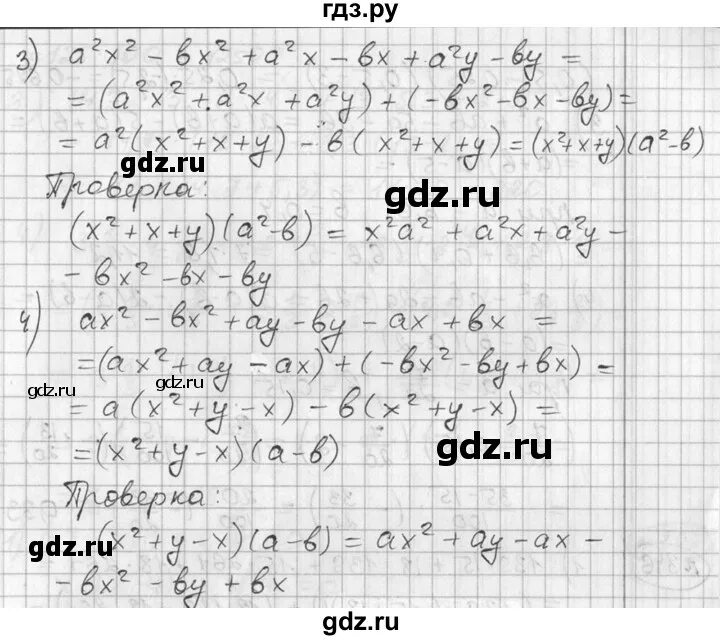 гдз.ру
3) a²x² - bx² + a²x - bx + a²y - by =
= (a²x² + a²x + a²y) + (-bx² - bx - by) =
= a²(x² + x + y) - b(x² + x + y) = (x² + x + y)(a² - b)
gdz.ru
gdz.ru
Проверка:
(x² + x + y)(a² - b) = x²a² + a²x + a²y -
- bx² - bx - by
4) ax² - bx² + ay - by - ax + bx =
= (ax² + ay - ax) + (-bx² - by + bx) =
gdz.ru
gdz.ru
= a(x² + y - x) - b(x² + y - x) =
= (x² + y - x)(a - b)
gdz.ru
Проверка:
(x² + y - x)(a - b) = ax² + ay - ax -
gdz.ru
- bx² - by + bx
gdz.ru